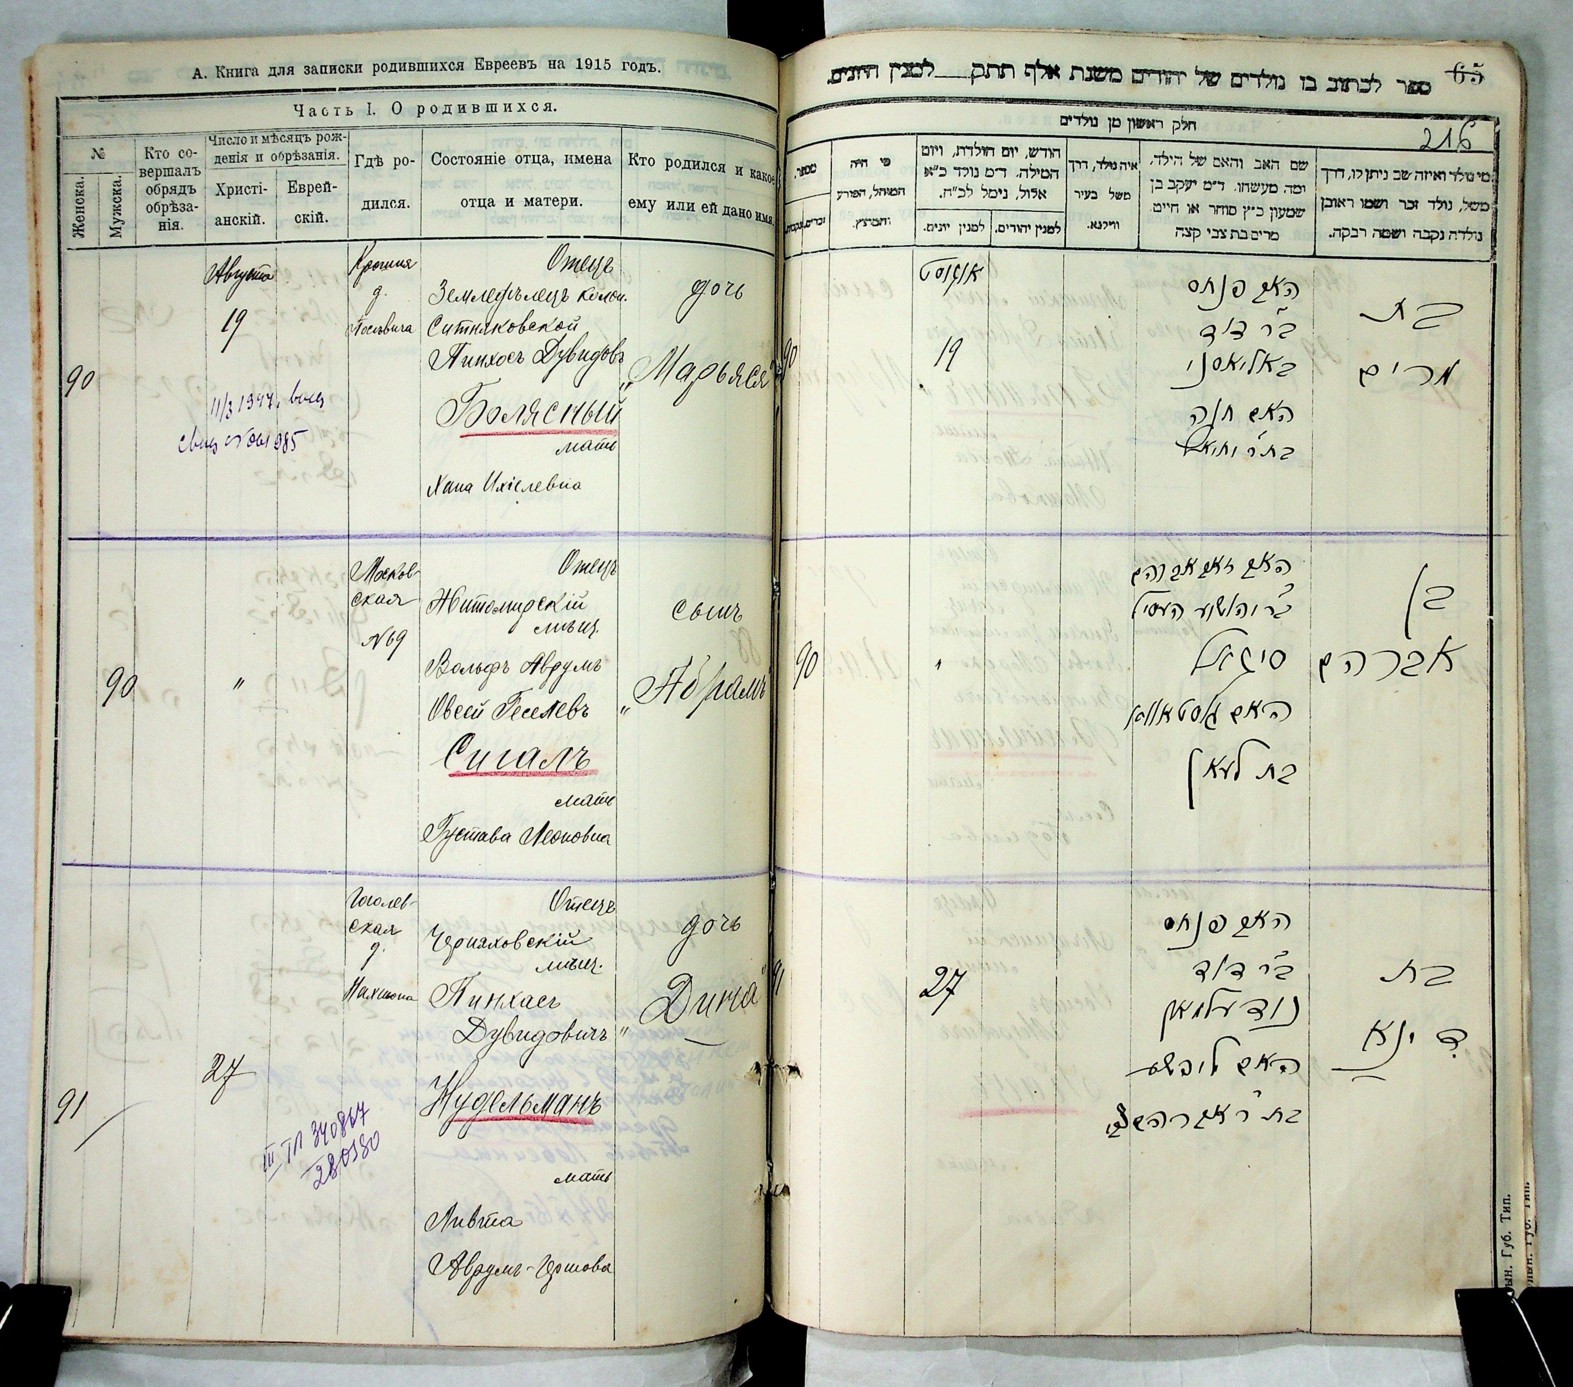 А. Книга для записки родившихся Евреевъ на 1915 годъ.
Часть I. О родившихся.
№
Женска.
Мужска.
Кто со-
вершалъ
обрядъ
обрѣза-
нія.
Число и мѣсяцъ рож-
денія и обрѣзанія.
Христі-
анскій.
Еврей-
скій.
Гдѣ ро-
дился.
Состояніе отца, имена
отца и матери.
Кто родился и какое
ему или ей дано имя.
90
Августа
19
11/3 1947
985
д.
Отецъ
Землед­ѣлецъ колон.
Ситняковской
Пинхосъ Дувидовъ
Болясный
мать
Хана Ихіелевна
дочь
„Марьяся"
90
"
Москов-
ская
№69
Отецъ
Житомирскій
мѣщ.
Вольфъ Аврумъ
Овсей Геселевъ
Сигалъ
мать
Густава Леоновна
сынъ
„Абрамъ"
91
27
III ТЛ 340847
280180
Гоголев-
ская
д.
Отецъ
Черняховскій
мѣщ.
Пинхасъ
Дувидовичъ
Нудельманъ
мать
Ливша
Аврумъ-Гершова
дочь
„Дина"
65
ספר לכתוב בו נולדים של יהודים משנת אלף תתק___למנין היונים.
216
חלק ראשון מן נולדים
מי נולד ואיזה שב ניתן לו, דרך
משל, נולד זכר ושמו ראובן
נולדה נקבה ושמה רבקה.
שם האב והאם של הילד,
ומה מעשהו. ד"מ יעקב בן
שמעון כ"ץ סוחר או חיים
מרים בת צבי קצה
איה נולד, דרך
משל בעיר
ווילנא.
חודש, יום הולדת, ויום
המילה. ד"מ נולד כ"א
אלול, נימל לכ"ח.
למנין יהודים.
למנין יונים.
מי היה
המוהל, הפורע
והמוצץ.
מספר.
זכרים.
נקבות.
90
אוגוסט
19
האב פנחס
ב"ר דוד
באליאסני
האם חנה
בת ר' יחיאל
בת
מרים
90
"
האב וואלף אברהם
ב"ר יהושע העסיל
סיגאל
האם גוסטאווא
בת לעאן
בן
אברהם
91
27
האב פנחס
ב"ר דוד
נודעלמאן
האם ליבשע
בת ר' אברהם צבי
בת
דינא
Губ. Тип.